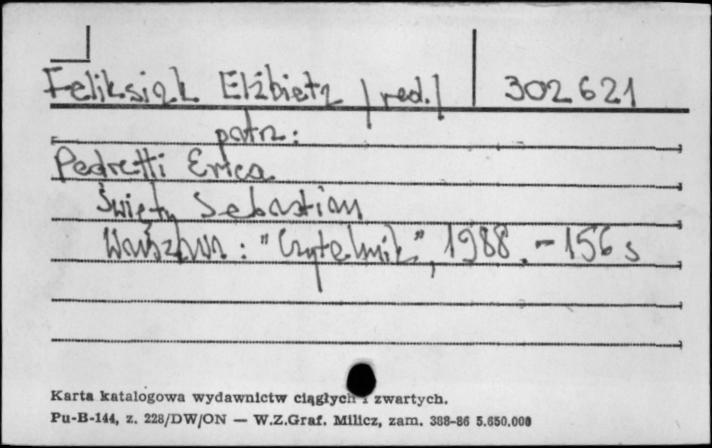 Feliksiak Elżbieta /red./ 302621
patrz:
Pedretti Erica
Święty Sebastian
Warszawa : "Czytelnik", 1988. - 156 s
Karta katalogowa wydawnictw ciągłych i zwartych.
Pu-B-144, z. 228/DW/ON — W.Z.Graf. Milicz, zam. 388-86 5.650.000